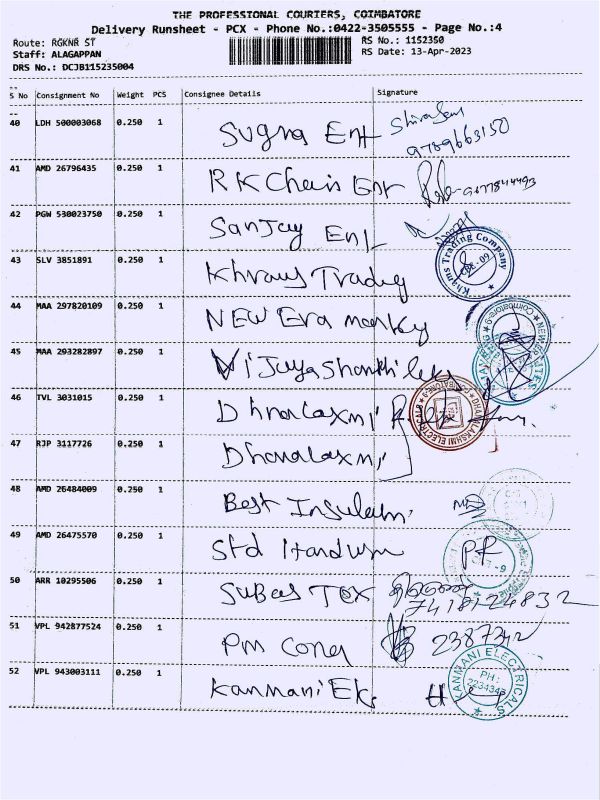 THE PROFESSIONAL COURIERS, COIMBATORE
Delivery Runsheet - PCX - Phone No.:0422-3505555 - Page No.:4
Route: RGKNR ST RS No.: 1152350
Staff: ALAGAPPAN RS Date: 13-Apr-2023
DRS No.: DCJB115235004
S No Consignment No Weight PCS Consignee Details Signature
40 LDH 500003068 0.250 1 Sugna Ent
9789663150
41 AMD 26796435 0.250 1 RK Chain Ent
42 PGW 530023750 0.250 1 Sanjay Ent
43 SLV 3851891 0.250 1 Khrams Trading Khams Trading Company
44 MAA 297820109 0.250 1 NEW Era
45 MAA 293282897 0.250 1 Vijayashanthi
46 TVL 3031015 0.250 1 Dhnalaxmi DHANALAKSHMI ELECTRICALS
47 RJP 3117726 0.250 1 Dhanalaxmi
48 AMD 26484009 0.250 1 Best Insulum
49 AMD 26475570 0.250 1 Std PR
50 ARR 10295506 0.250 1 Subas Tex
7418124832
51 VPL 942877524 0.250 1 Pm
52 VPL 943003111 0.250 1 Kanmani Eks KANMANI ELECTRICALS PH: 2234343